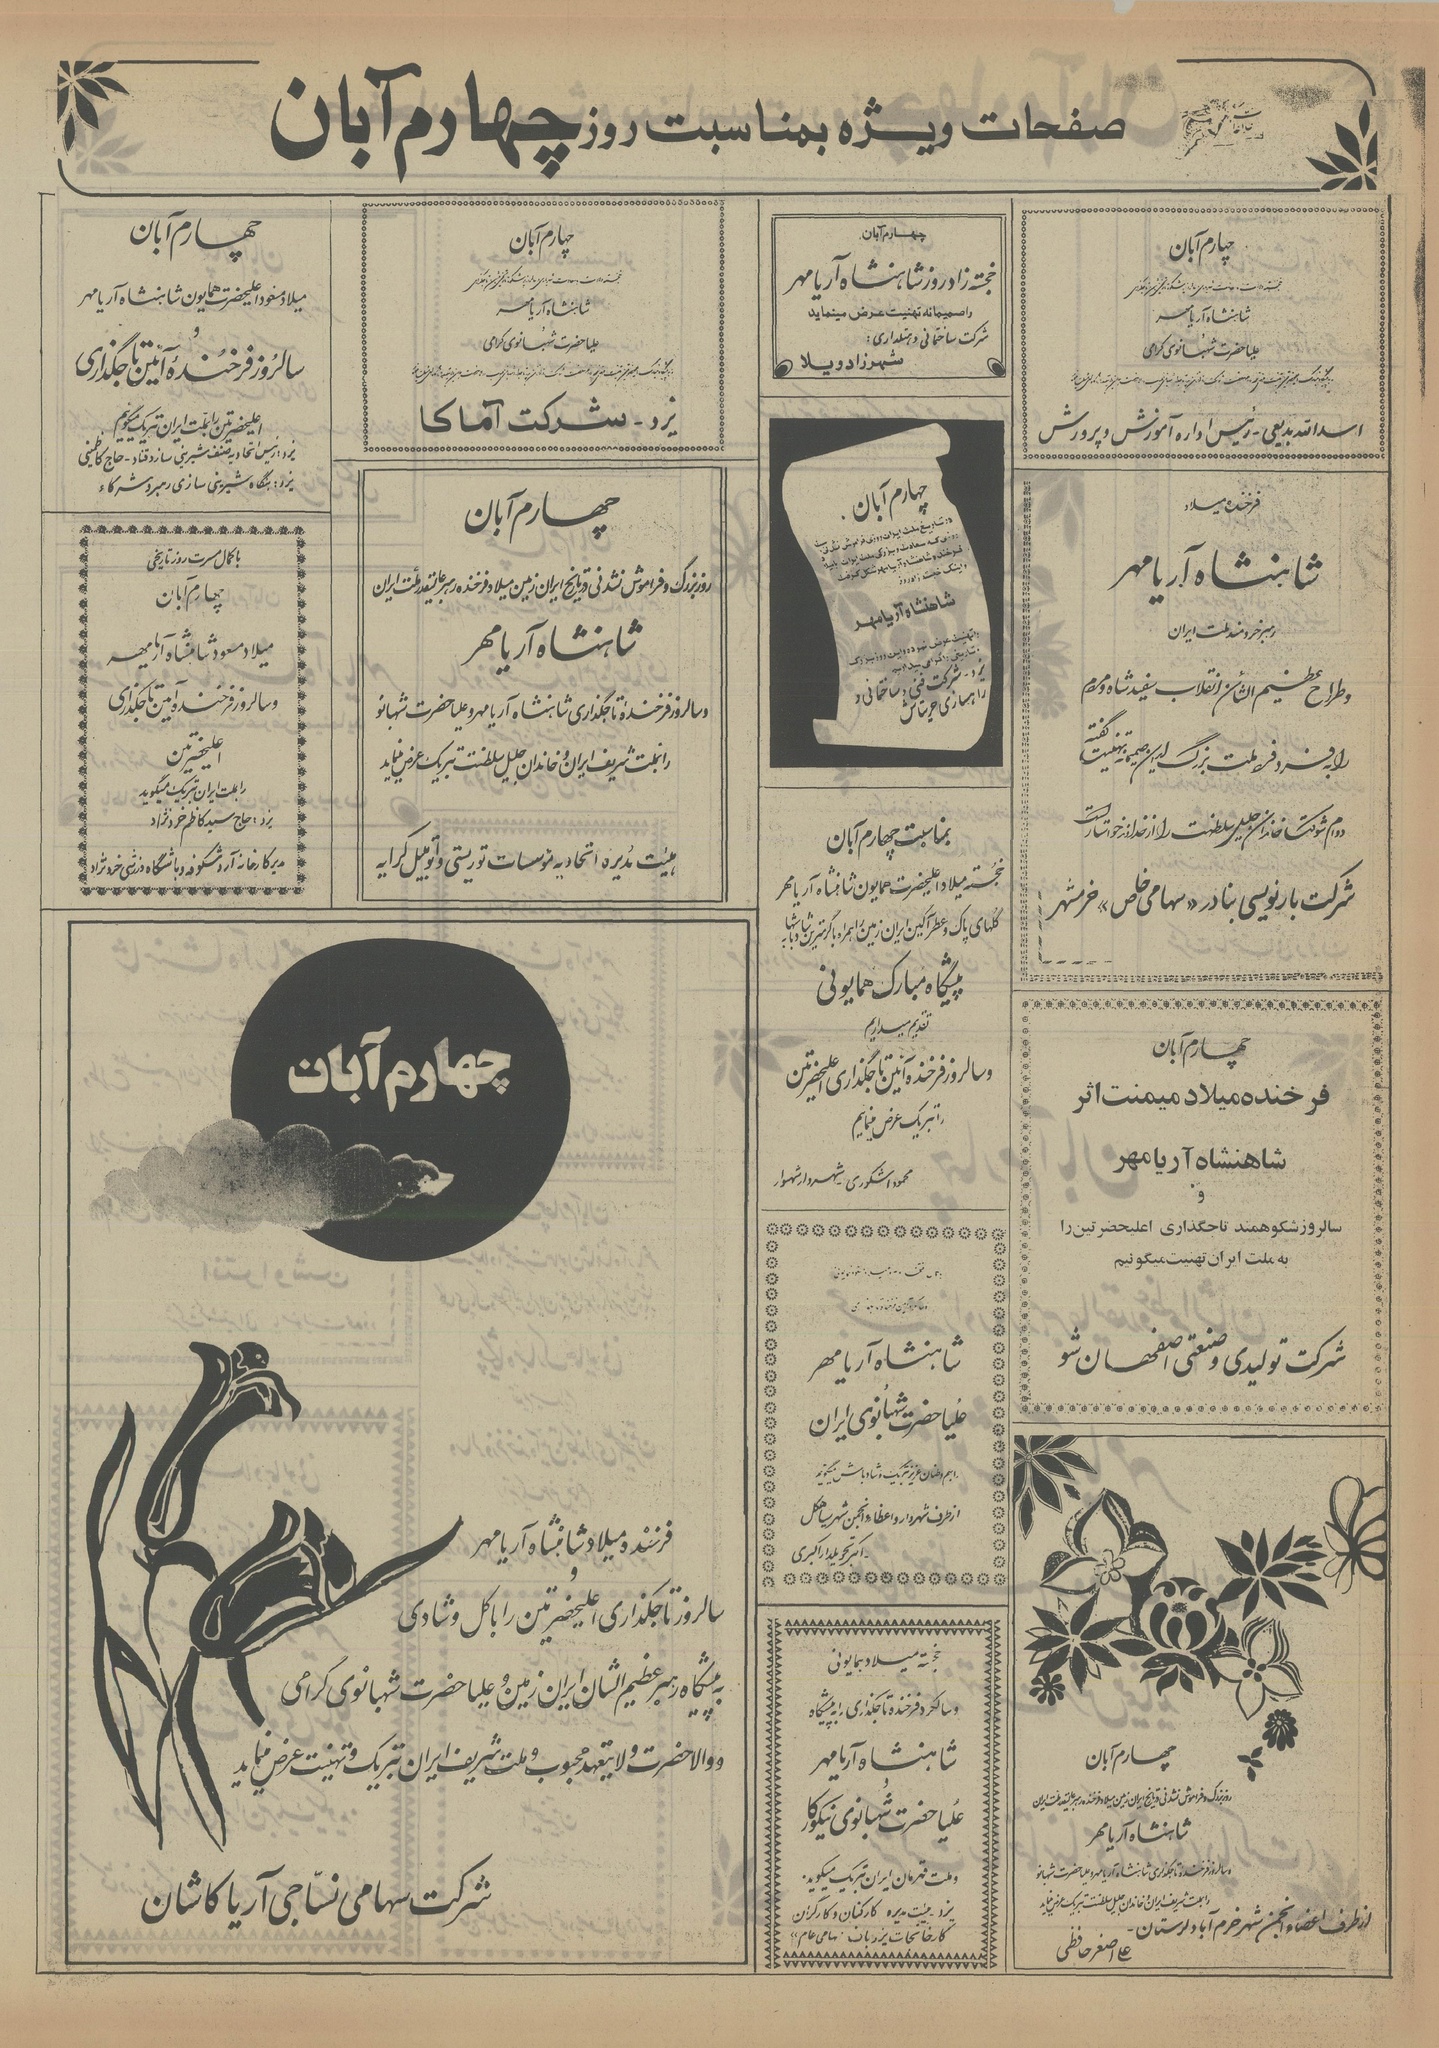 صفحات ویژه بمناسبت روز چهارم آبان
چهارم آبان
شاهنشاه آریامهر
علیاحضرت شهبانوی گرامی
اسدالله بدیعی - رئیس اداره آموزش و پرورش
فرخنده میلاد
شاهنشاه آریامهر
رهبر خردمند ملت ایران
و طراح عظیم الشأن انقلاب سفید شاه و مردم
را به فرد فرد ملت بزرگ ایران صمیمانه تهنیت گفته
دوام شوکت خاندان جلیل سلطنت را از خداوند خواستار است
شرکت بارنویسی بنادر «سهامی خاص» خرمشهر
چهارم آبان
فرخنده میلاد میمنت اثر
شاهنشاه آریامهر
و
سالروز شکوهمند تاجگذاری اعلیحضرتین را
به ملت ایران تهنیت میگوئیم
شرکت تولیدی و صنعتی اصفهان شو
چهارم آبان
روز بزرگ و فراموش نشدنی در تاریخ ایران زمین میلاد فرخنده رهبر عالیقدر ملت ایران
شاهنشاه آریامهر
و سالروز فرخنده تاجگذاری شاهنشاه آریامهر و علیاحضرت شهبانو
را بملت شریف ایران و خاندان جلیل سلطنت تبریک عرض مینماید
از طرف اعضاء انجمن شهر خرم آباد لرستان -
علی اصغر حافظی
چهارم آبان
خجسته زادروز شاهنشاه آریامهر
را صمیمانه تهنیت عرض مینماید
شرکت ساختمانی و هتلداری:
شهرزاد ویلا
چهارم آبان.
شاهنشاه آریامهر
یزد - شرکت فنی و ساختمانی و
راهسازی
بمناسبت چهارم آبان
خجسته میلاد اعلیحضرت همایون شاهنشاه آریامهر
گلهای پاک و عطرآگین ایران زمین را همراه با گرمترین شادباشها به
پیشگاه مبارک همایونی
تقدیم میداریم
و سالروز فرخنده آئین تاجگذاری اعلیحضرتین
را تبریک عرض مینمایم
محمود اشکوری شهردار شهسوار
شاهنشاه آریامهر
علیاحضرت شهبانوی ایران
را بهم وطنان عزیز تبریک و شادباش میگوید
از طرف شهردار و اعضاء انجمن شهر سیاهکل
- اکبر تحویلدار اکبری
خجسته میلاد همایونی
و سالگرد فرخنده تاجگذاری را به پیشگاه
شاهنشاه آریامهر
و
علیاحضرت شهبانوی نیکوکار
و ملت قهرمان ایران تبریک میگوید.
یزد - هیئت مدیره کارکنان و کارگران
کارخانجات یزدباف «سهامی عام»
چهارم آبان
شاهنشاه آریامهر
علیاحضرت شهبانوی گرامی
یزد - شرکت آماکا
چهارم آبان
روز بزرگ و فراموش نشدنی در تاریخ ایران زمین میلاد فرخنده رهبر عالیقدر ملت ایران
شاهنشاه آریامهر
و سالروز فرخنده تاجگذاری شاهنشاه آریامهر و علیاحضرت شهبانو
را بملت شریف ایران و خاندان جلیل سلطنت تبریک عرض مینماید
هیئت مدیره اتحادیه مؤسسات توریستی و اتومبیل کرایه
چهارم آبان
میلاد مسعود اعلیحضرت همایون شاهنشاه آریامهر
و
سالروز فرخنده آئین تاجگذاری
اعلیحضرتین را بملت ایران تبریک میگوئیم
یزد: رئیس اتحادیه صنف شیرینی ساز و قناد - حاج کاظمینی
یزد: بنگاه شیرینی سازی رهبر و شرکاء
با کمال مسرت روز تاریخی
چهارم آبان
میلاد مسعود شاهنشاه آریامهر
و سالروز فرخنده آئین تاجگذاری
اعلیحضرتین
را بملت ایران تبریک میگوید
یزد: حاج سید کاظم خردنژاد
مدیر کارخانه آرد شکوفه و باشگاه ورزشی خردنژاد
چهارم آبان
فرخنده میلاد شاهنشاه آریامهر
و
سالروز تاجگذاری اعلیحضرتین را با گل و شادی
به پیشگاه رهبر عظیم الشان ایران زمین و علیاحضرت شهبانوی گرامی
و والاحضرت ولایتعهد محبوب و ملت شریف ایران تبریک و تهنیت عرض مینماید
شرکت سهامی نساجی آریا کاشان